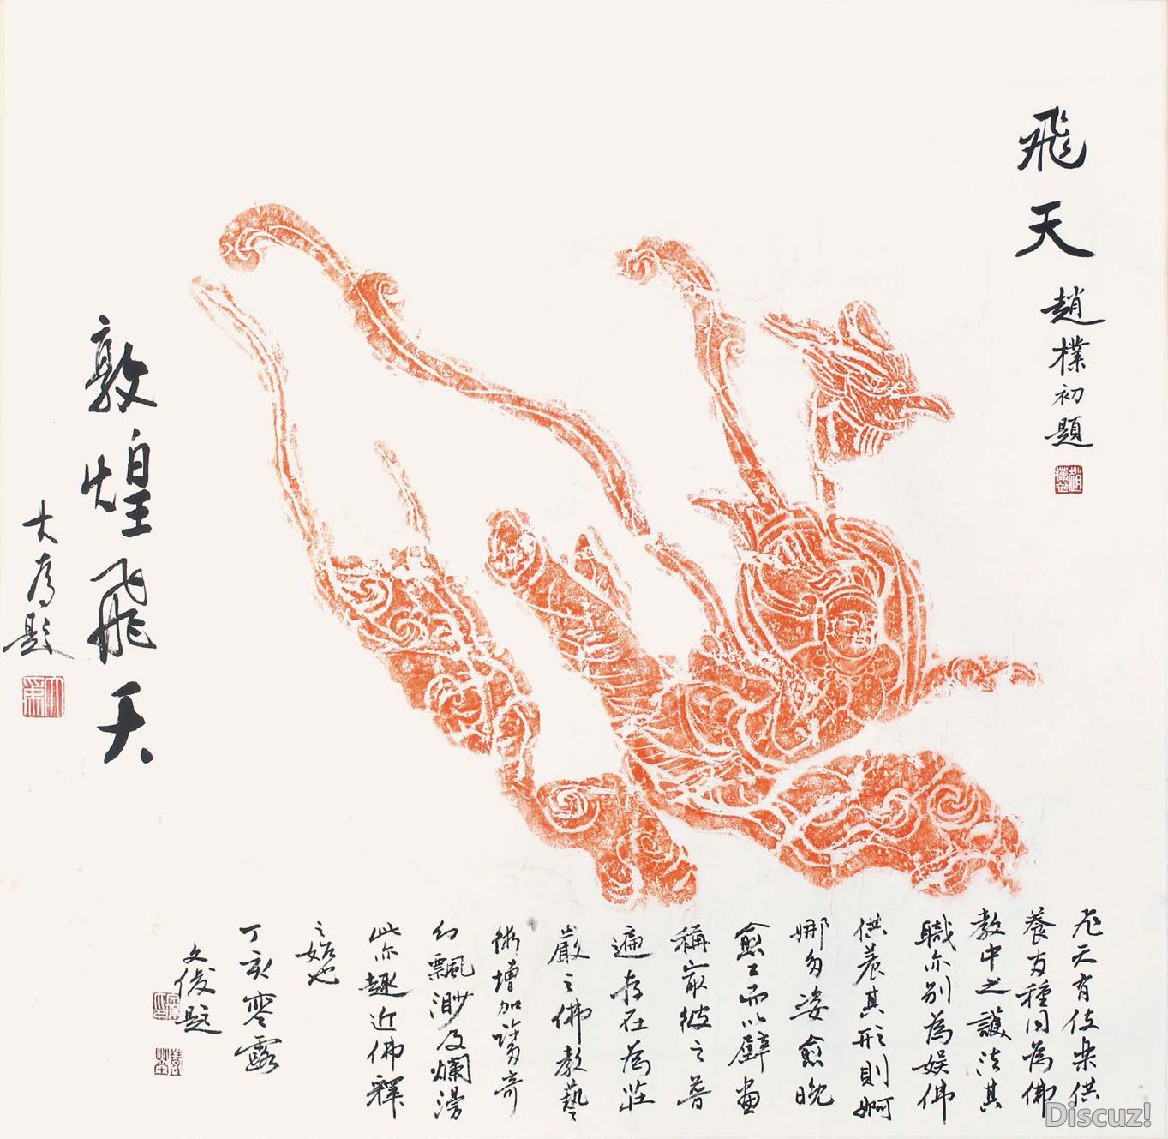 飛天
趙樸初題
敦煌飛天
大為題
飛天有伎樂供
養種同為佛
教中之護法其
職亦別為娛佛
供養其形則婀
娜多姿愈晚
愈工而以壁畫
稱最彼之普
遍存在為莊
嚴之佛教藝
術增加許多奇
幻飄渺及爛漫
此亦趣近佛釋
之始也
丁亥寒露
文俊題
Discuz!